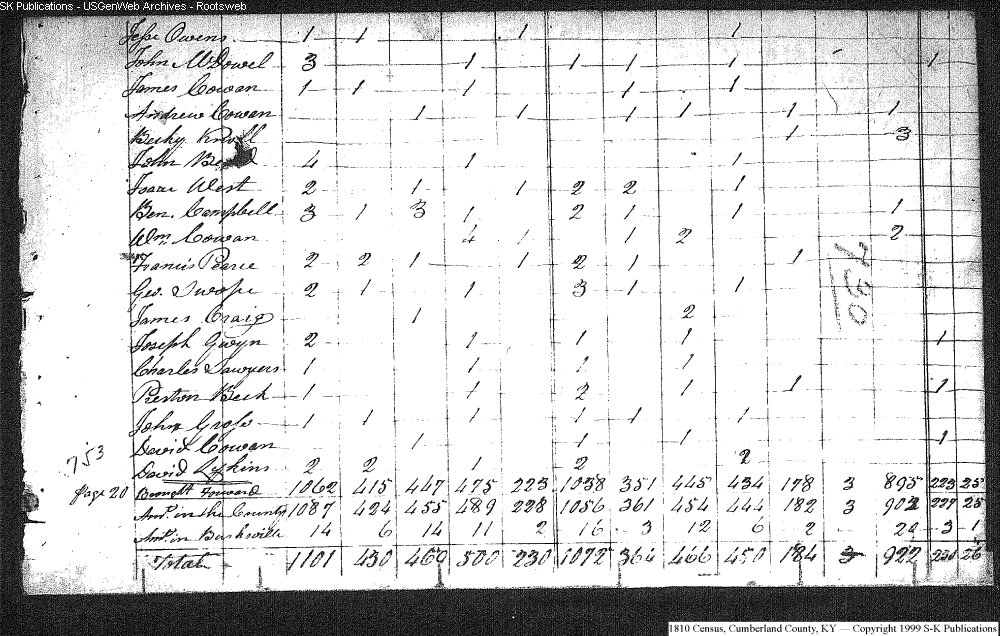 SK Publications - USGenWeb Archives - Rootsweb
Jesse Owens 1 1 1 1
John McDowel 3 1 1 1 1 1
James Cowan 1 1 1 1 1
Andrew Cowan 1 1 1 1 1 1
Becky 1 3
John 4 1 1
Isaac West 2 1 1 2 2 1
Ben. Campbell 3 1 3 1 2 1 1 1
Wm. Cowan 4 1 1 2 2
Francis Pearce 2 2 1 1 2 1 1
Geo. Swope 2 1 1 3 1 1
James Craig 1 2
Joseph Gwyn 2 1 1 1 1
Charles Sawyers 1 1 1 1
Preston Beck 1 1 2 1 1 1
John Gross 1 1 1 1 1 1
David Cowan 1 1 1 1
David 2 2 1 2 2
Page 20 Brought Forward 1062 415 447 475 223 1038 351 445 434 178 3 895 223 25
Amt. in the County 1087 424 455 489 228 1056 361 454 444 182 3 902 227 25
Amt. in Burksville 14 6 14 11 2 16 3 12 6 2 20 3 1
Total 1101 430 469 500 230 1072 364 466 450 184 3 922 230 26
753
1810 Census, Cumberland County, KY — Copyright 1999 S-K Publications